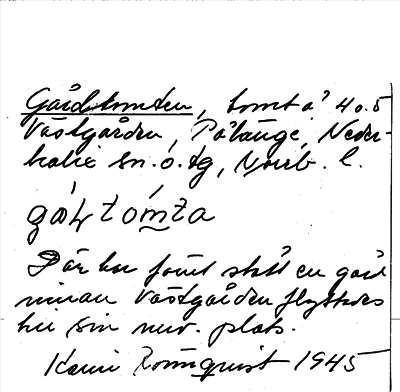 Gårdstomten, tomt å 4o.5
Västgården, Pålänge, Neder-
kalix sn. o. tg, Norrb. l.
Där har förut stått en gård
innan Västgården flyttades
till sin nuv. plats.
Karin Rönnquist 1945